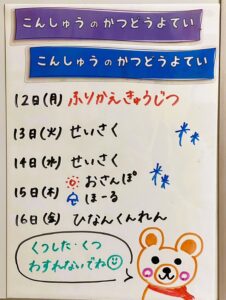 こんしゅうのかつどうよてい
こんしゅうのかつどうよてい
12日(月) ふりかえきゅうじつ
13日(火) せいさく
14日(水) せいさく
15日(木) おさんぽ
ほーる
16日(金) ひなんくんれん
くつした・くつ
わすれないでね